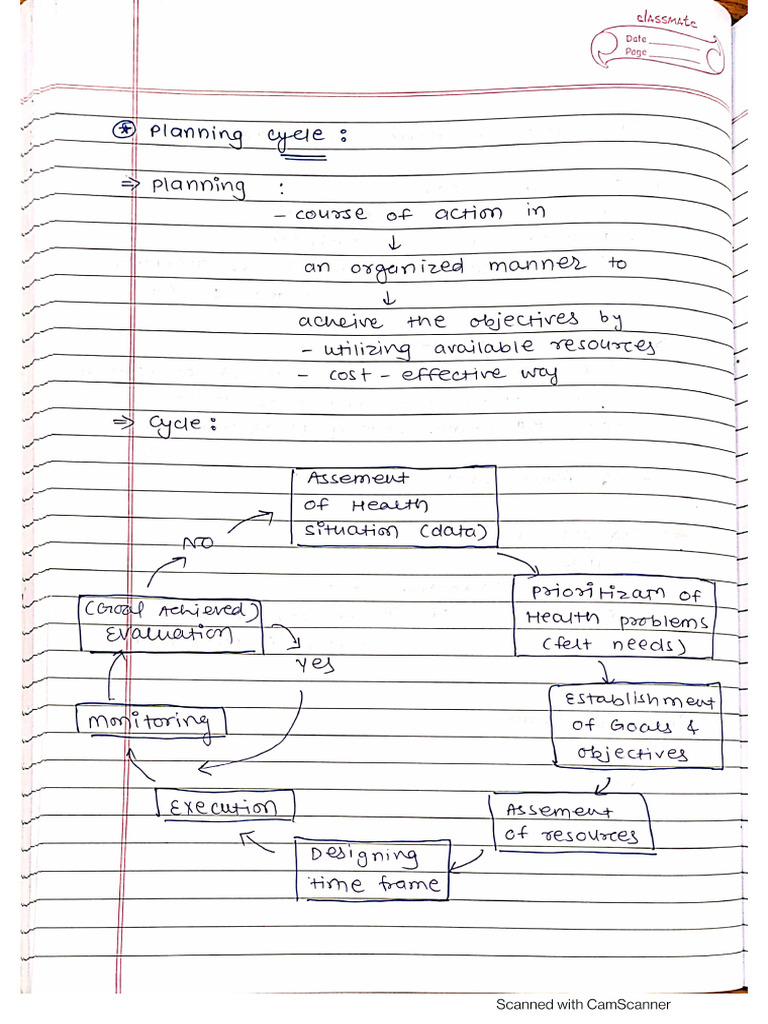 classmate
Date
Page
* Planning cycle :
⇒ Planning :
- course of action in
↓
an organized manner to
↓
acheive the objectives by
- utilizing available resources
- cost - effective way
⇒ cycle :
Assement
of Health
situation (data)
NO
Prioritizatn of
Health problems
(felt needs)
(Goal Achieved)
Evaluation
Yes
Establishment
of Goals &
objectives
Monitoring
Execution
Assement
of resources
Designing
time frame
Scanned with CamScanner